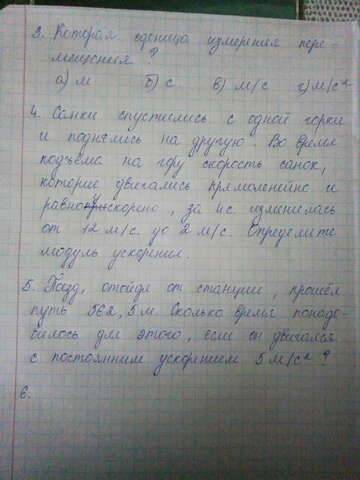 3. Которая единица измерения пере-
мещения ?
а) м б) с в) м/с г) м/с²
4. Санки спустились с одной горки
и поднялись на другую. Во время
подъёма на гору скорость санок,
которые двигались прямолинейно и
равноускорено, за 4с. изменилась
от 12 м/с. до 2 м/с. Определите
модуль ускорения.
5. Поезд, отойдя от станции, прошёл
путь 562,5 м. Сколько время понадо-
билось для этого, если он двигался
с постоянним ускорением 5 м/с² ?
6.